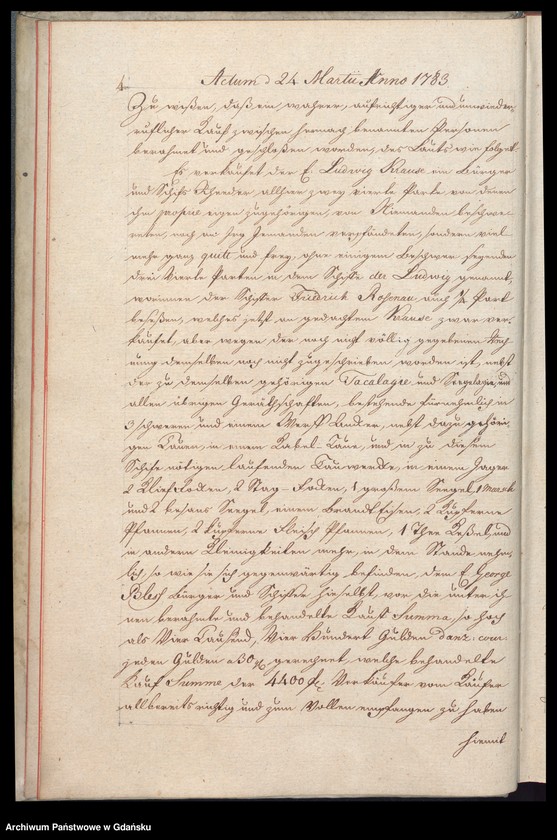 Actum d 24 Martii Anno 1783
Zu wißen, daß ein wahrer, aufrichtiger und unwieder
ruflicher Kauf zwischen hernach benannten Personen
berahmet und geschloßen worden, des Lauts wie folget.
Es verkaufet der E. Ludwig Krause ein Bürger
und Schifs Rheeder allhier zwey vierte Parte von denen
ihm proprie eigen zugehörigen, von Niemanden beschwer
reten, noch an Jemanden verpfändeten, sondern viel
mehr ganz quitt und frey, ohne einigem Beschwer seyenden
drei Vierte Parten in dem Schiffe der Ludwig genannt,
worinnen der Schiffer Friedrich Rosenau auch 1/4 Part
beseßen, welches jetzt an gedachtem Krause zwar ver
kaufet, aber wegen der noch nicht völlig gegebenen Rech
nung demselben noch nicht zugeschrieben worden ist, nebst
der zu demselben gehörigen Tacalagie und Seegelagie, und
allen übrigen Geräthschaften, bestehende fürnehmlich in
3 schweren und einem Werff Ancker, nebst dazu gehöri
gen Tauen, in einem Kabel-Taue, und in zu diesem
Schife nötigen laufenden Tauwerke, in einem Jager
2 Klief Focken, 2 Stag-Focken, 1 großem Seegel, 1 Marseh
und 2 besans Seegel, einem Brandt Eisen, 2 Kupferne
Pfannen, 2 kupferne Fleisch Pfannen, 1 Thee Keßel, und
in andern Kleinigkeiten mehr, in dem Stande nehm
lich, so wie sie sich gegenwärtig befinden, dem E. George
Bürger und Schiffer hieselbst, vor die unter ih
nen berahmte und behandelte Kauf Summa, so hoch
als Vier Tausend, Vier Hundert Gulden danz: cour:
jeden Gulden a 30 gr gerechnet, welche behandelte
Kauf Summe der 4400 fl. Verkäufer vom Käufer
allbereits richtig und zum Vollen empfangen zu haben
hiemit
Archiwum Państwowe w Gdańsku